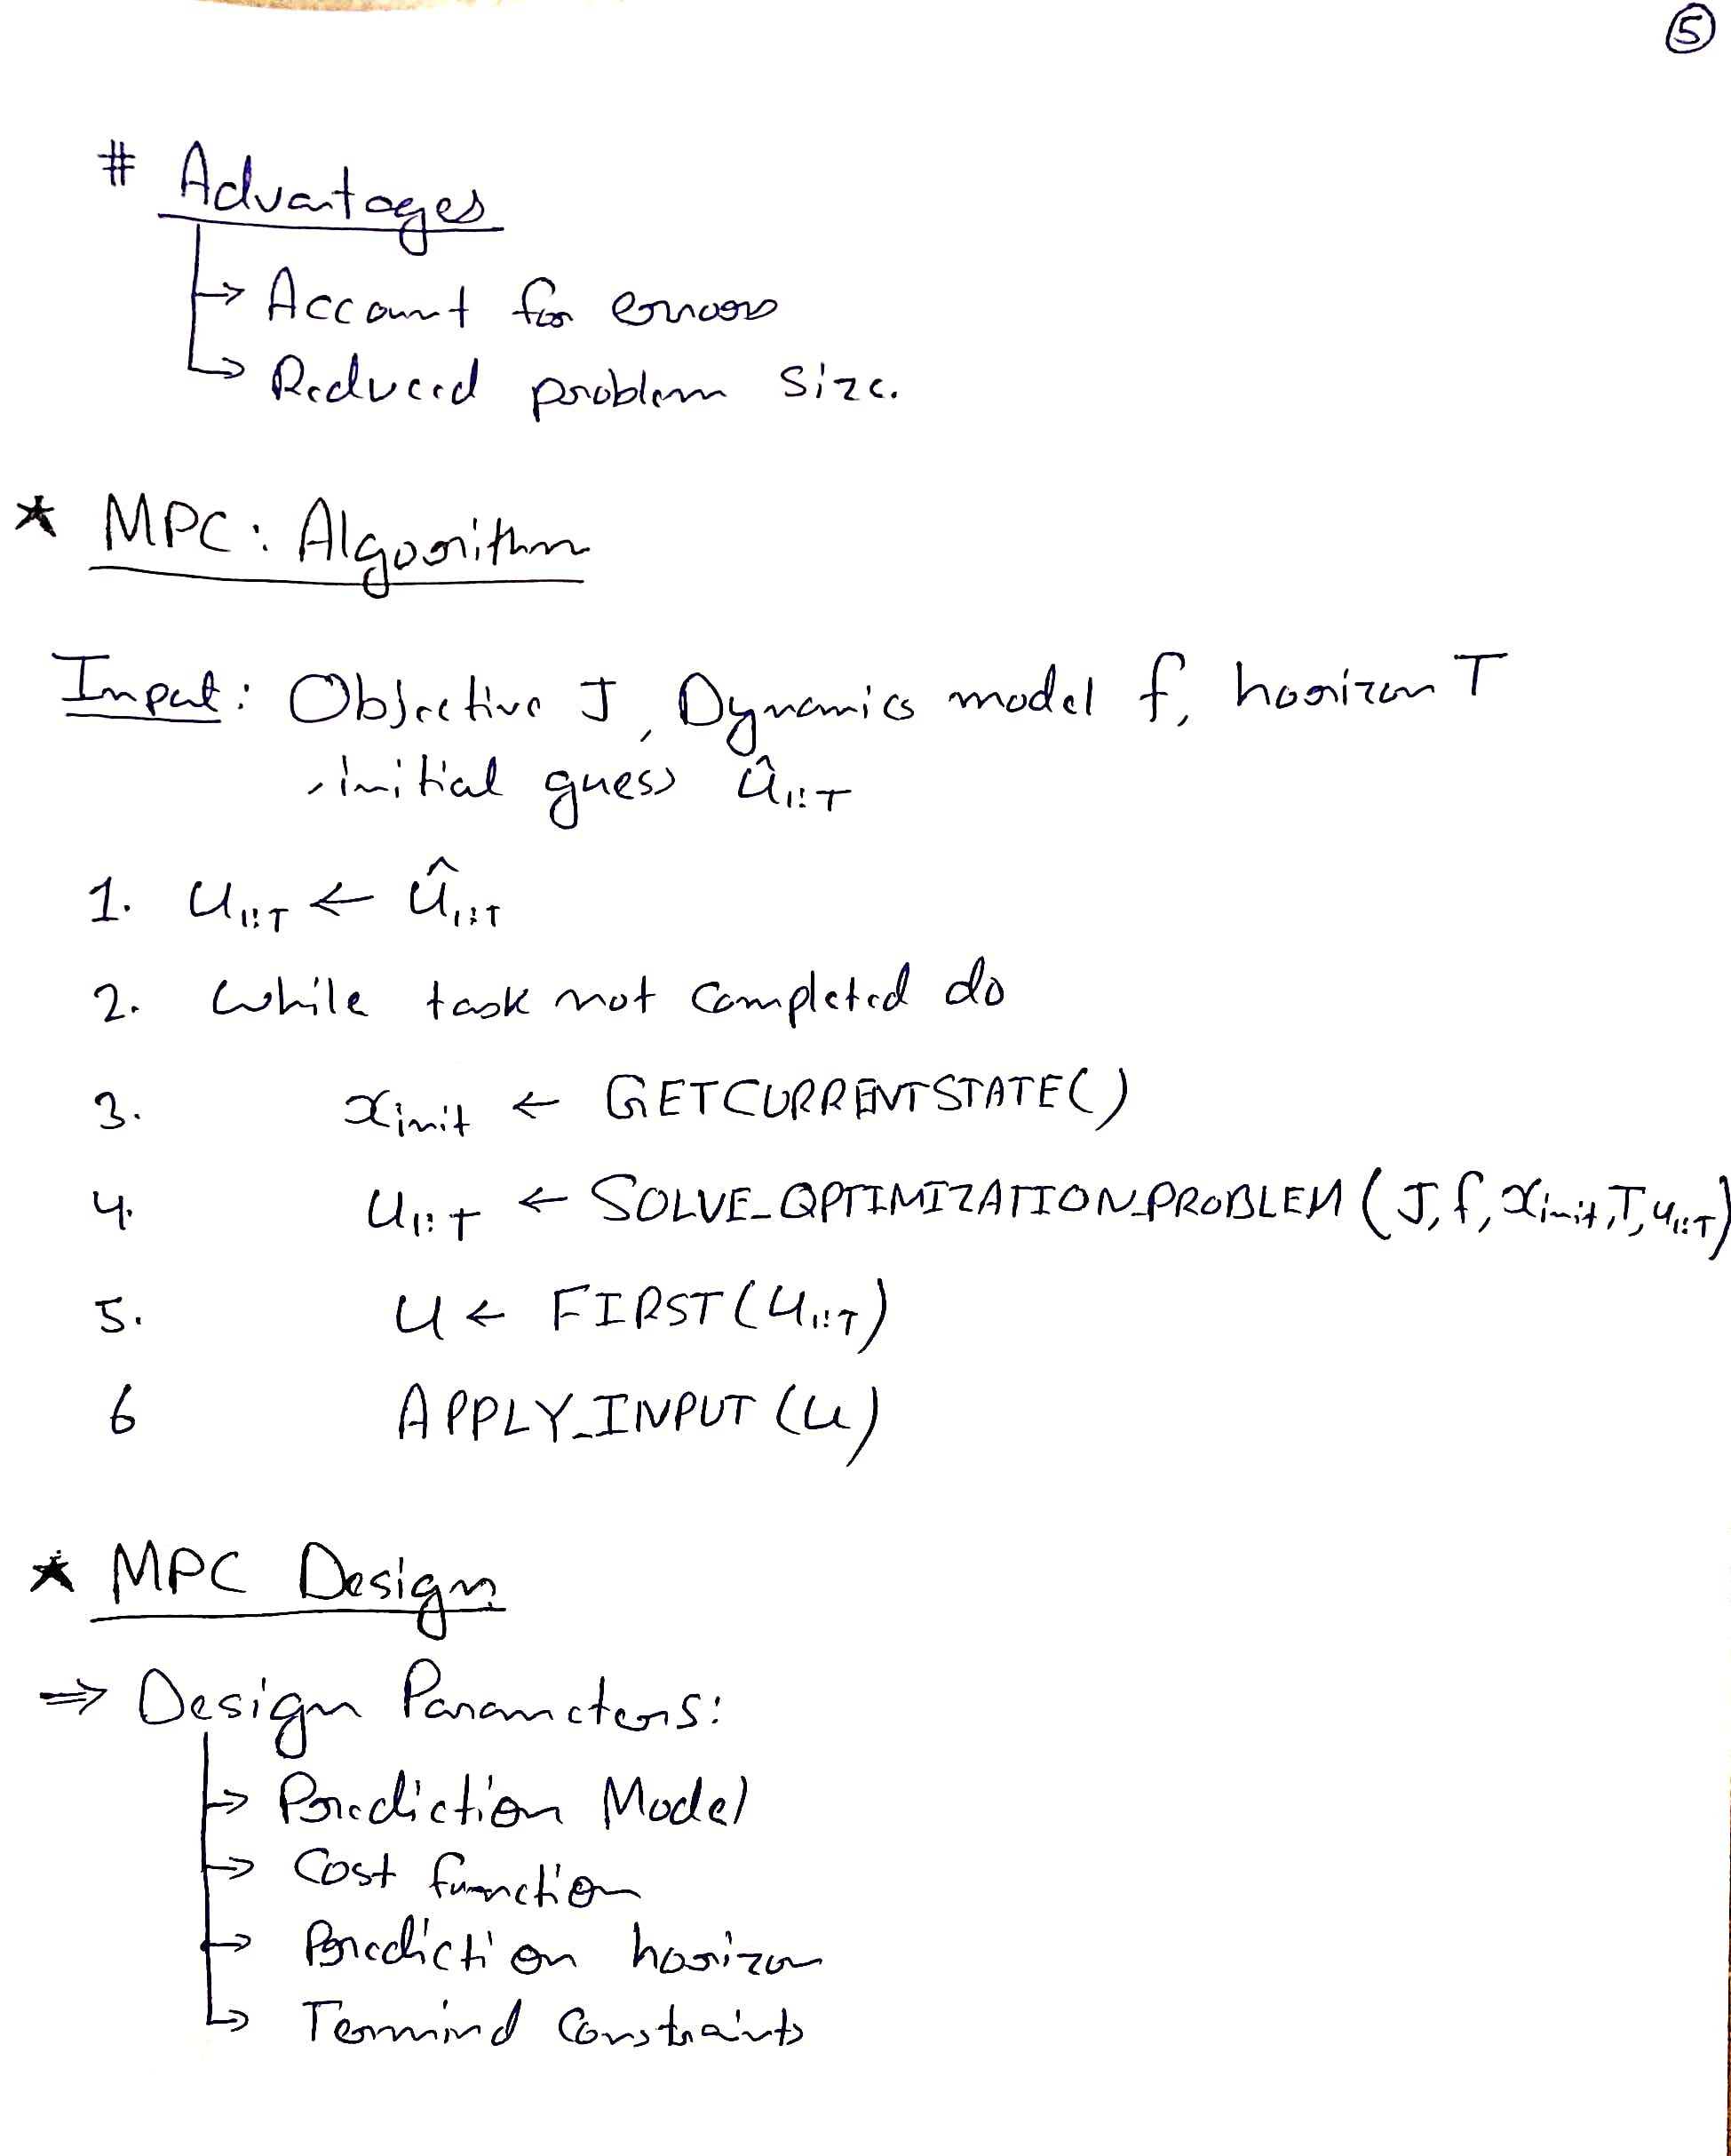 5
# Advantages
→ Account for errors
→ Reduced problem size.
* MPC: Algorithm
Input: Objective J, Dynamics model f, horizon T
, initial guess û1:T
1. u1:T ← û1:T
2. while task not completed do
3. xinit ← GETCURRENTSTATE()
4. u1:T ← SOLVE_OPTIMIZATION_PROBLEM (J, f, xinit, T, u1:T)
5. u ← FIRST(u1:T)
6 APPLY_INPUT (u)
* MPC Design
⇒ Design Parameters:
→ Prediction Model
→ Cost function
→ Prediction horizon
→ Terminal Constraints